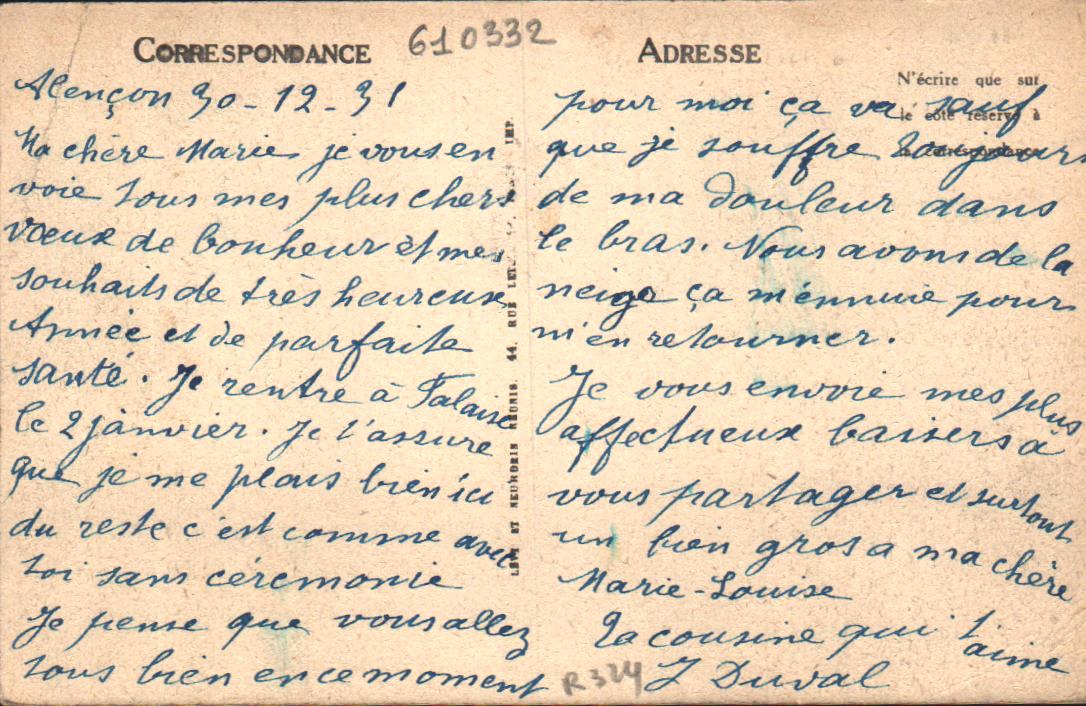 CORRESPONDANCE
610332
Alençon 30-12-31
Ma chère Marie je vous en
voie tous mes plus chers
vœux de bonheur et mes
souhaits de très heureuse
Année et de parfaite
santé. Je rentre à Falaise
le 2 janvier. Je t'assure
que je me plais bien ici
du reste c'est comme avec
toi sans cérémonie
Je pense que vous allez
tous bien en ce moment
LÉVY ET NEURDEIN RÉUNIS. 44. RUE IMP.
ADRESSE
N'écrire que sur
le côté réservé à
la correspondance
pour moi ça va sauf
que je souffre toujours
de ma douleur dans
le bras. Nous avons de la
neige ça m'ennuie pour
m'en retourner.
Je vous envoie mes plus
affectueux baisers à
vous partager et surtout
un bien gros a ma chère
Marie-Louise
Ta cousine qui t'aime
J Duval
R324